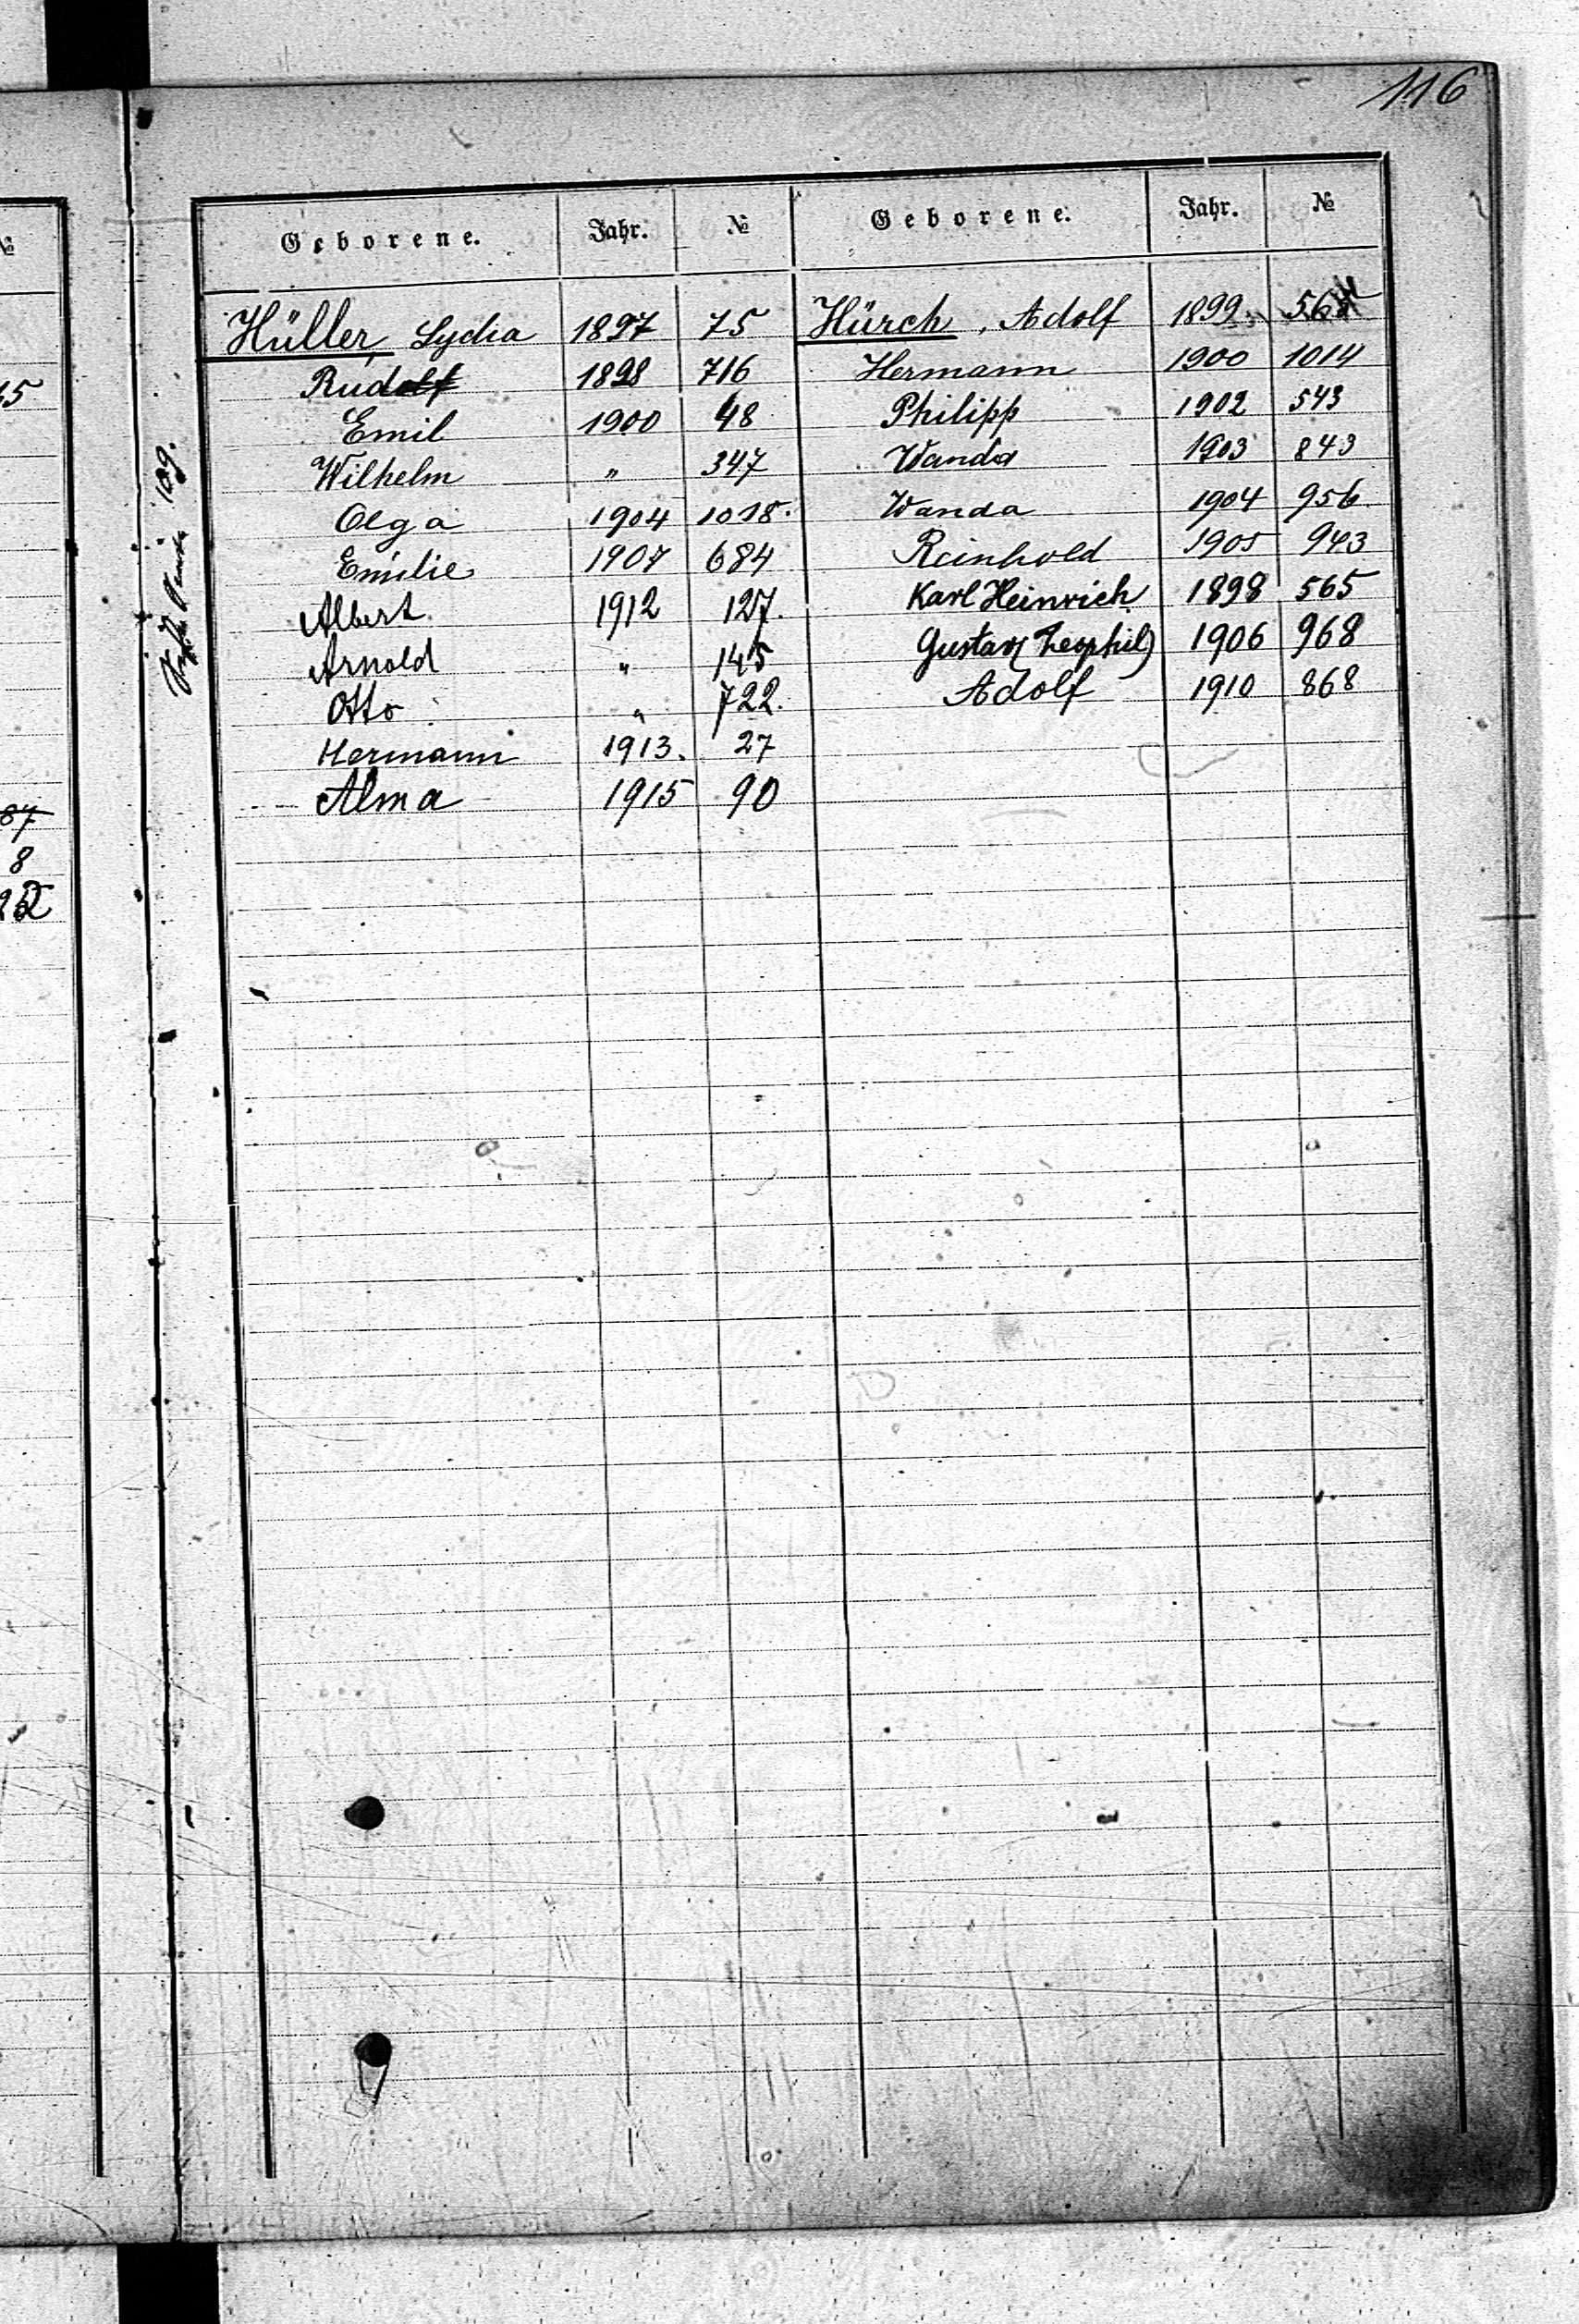 116
Geborene. Jahr. №
Hüller, Lydia 1897 75
Rudolf 1898 716
Emil 1900 48
Wilhelm " 347
Olga 1904 1018.
Emilie 1907 684
Albert 1912 127.
Arnold " 145
Otto " 722.
Hermann 1913. 27
Alma 1915 90
Geborene. Jahr. №
Hürch, Adolf 1899 564
Hermann 1900 1014
Philipp 1902 543
Wanda 1903 843
Wanda 1904 956
Reinhold 1905 943
Karl Heinrich 1898 565
Gustav 1906 968
Adolf 1910 868
109.
№
8